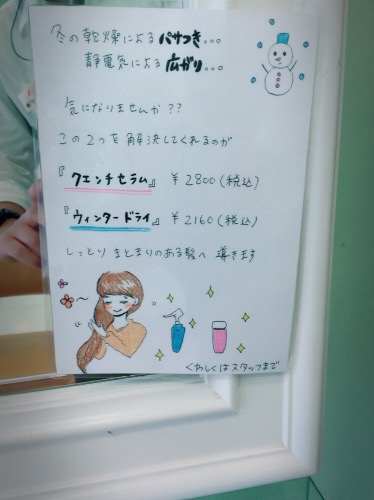 冬の乾燥によるパサつき...
静電気による広がり...
気になりませんか??
この2つを解決してくれるのが
『クエンチセラム』 ¥2800(税込)
『ウィンタードライ』 ¥2160(税込)
しっとりまとまりのある髪へ導きます
くわしくはスタッフまで